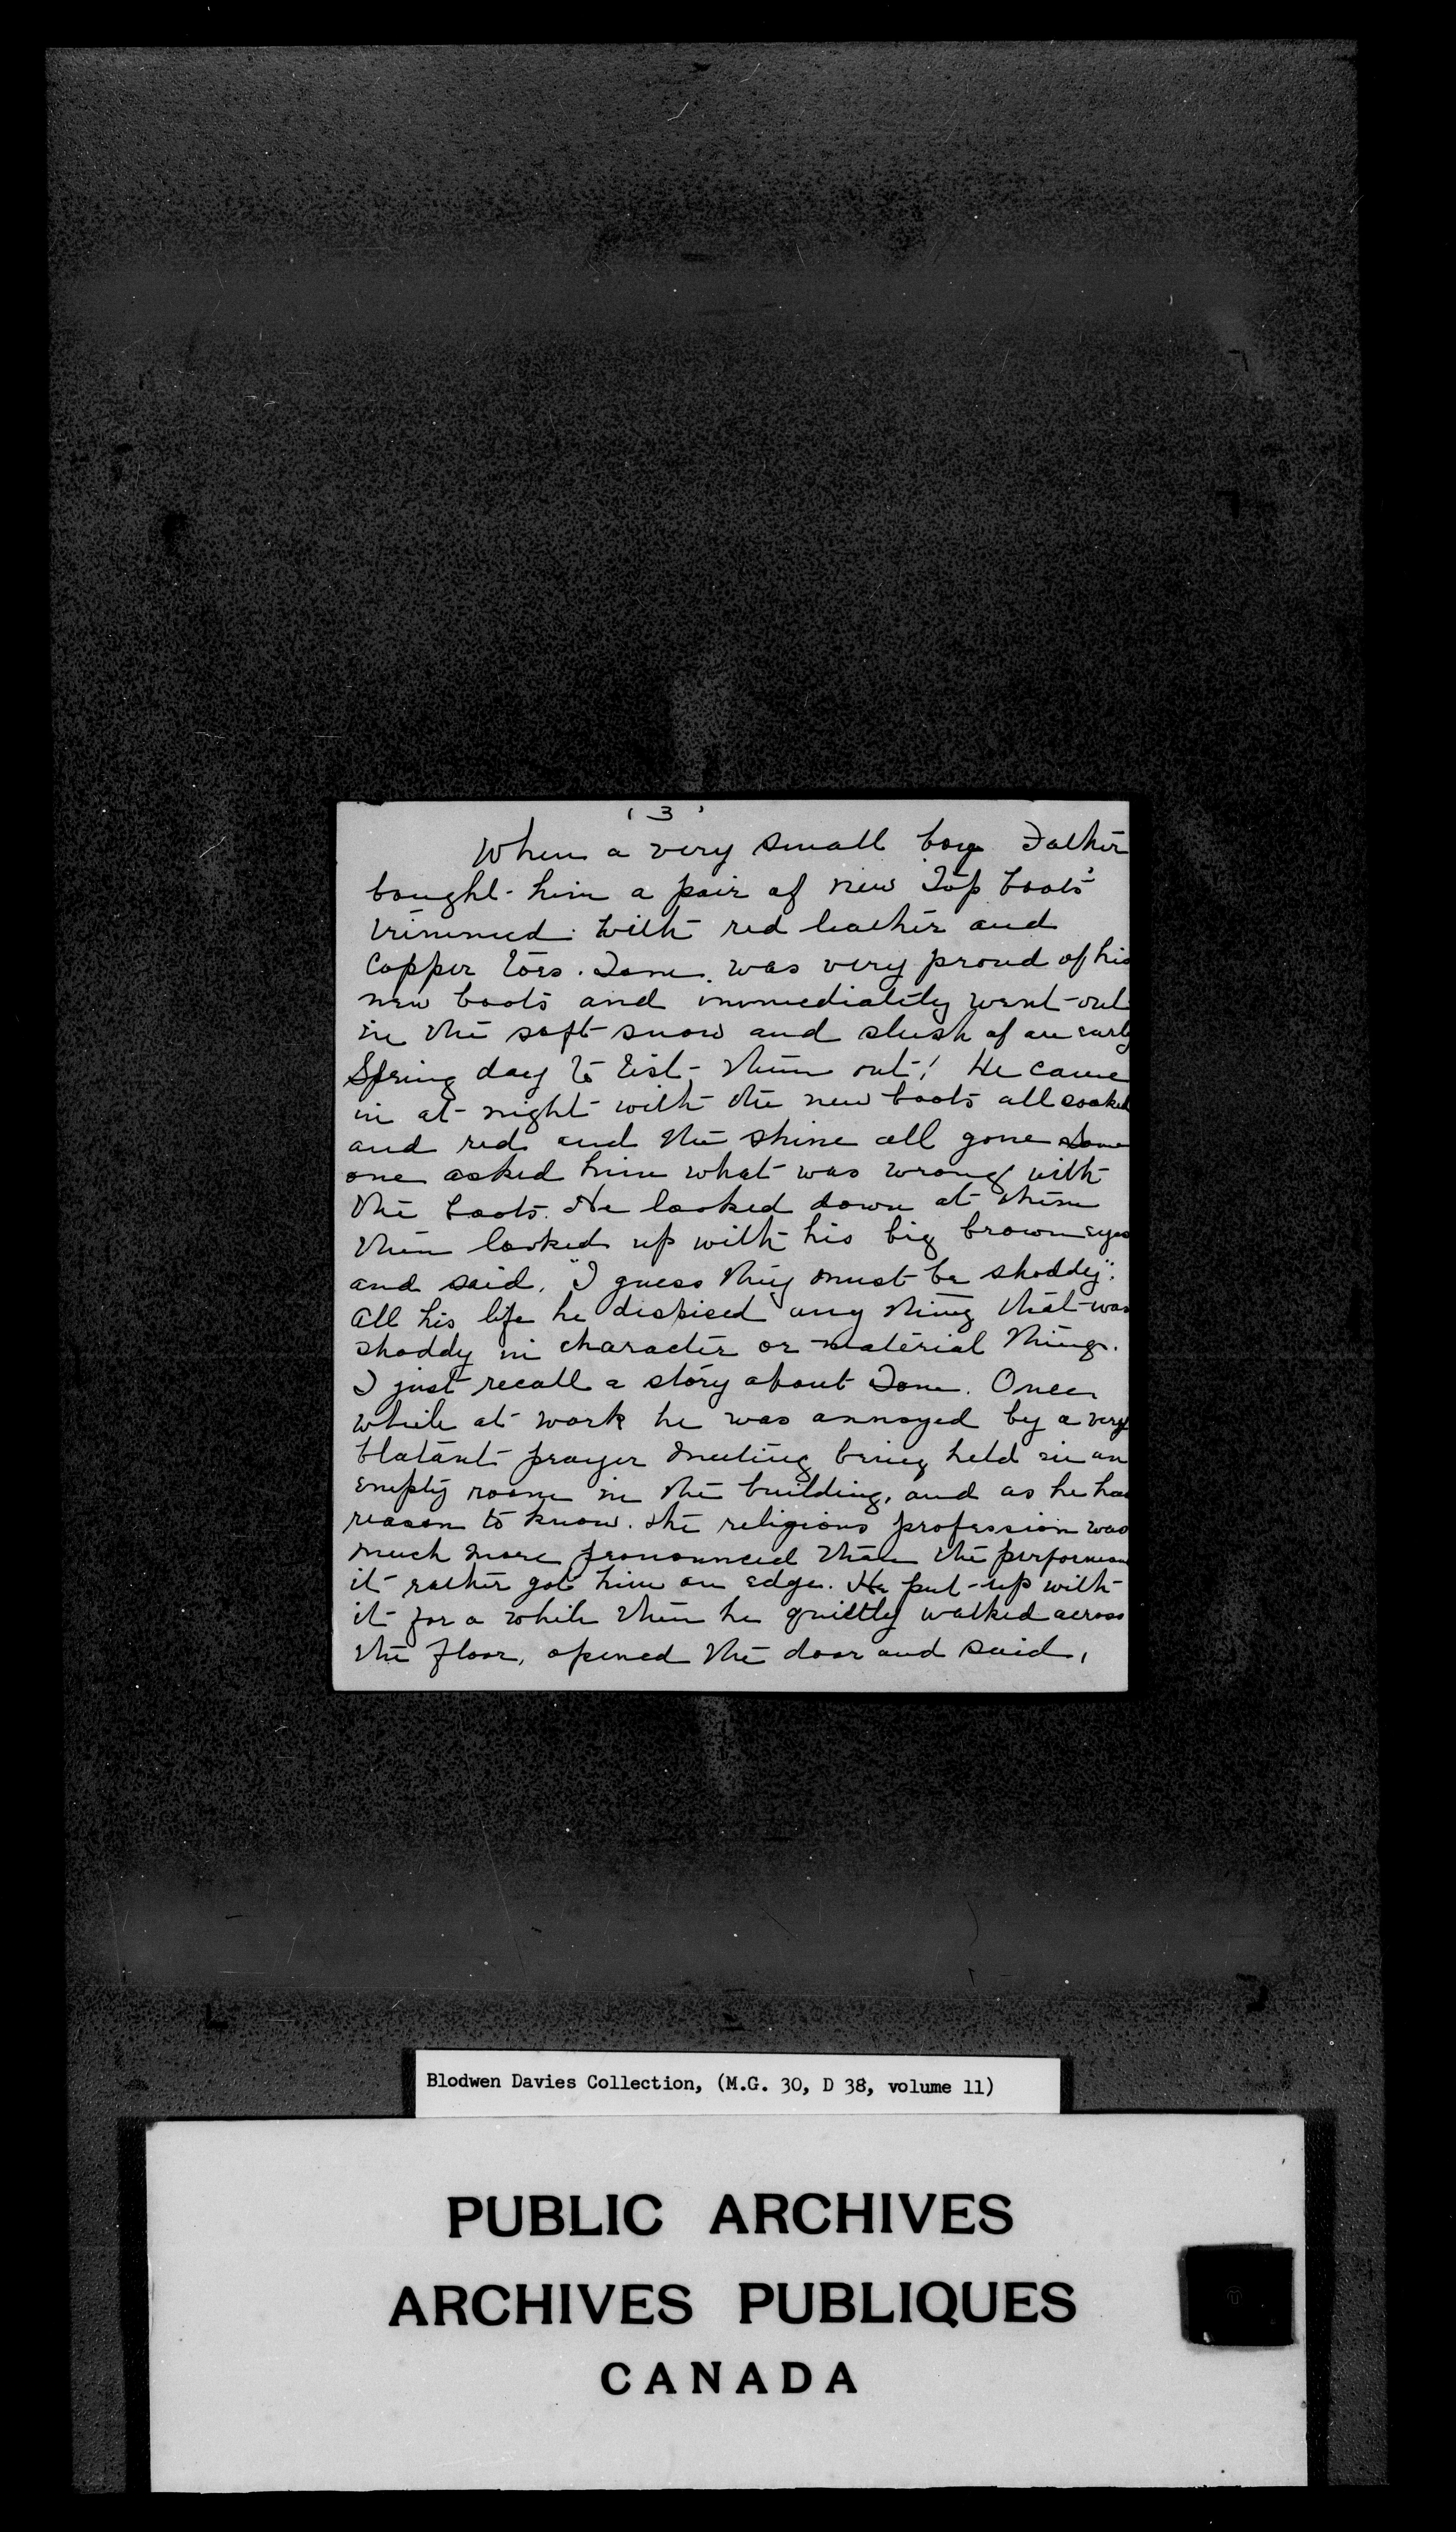 (3)
When a very small boy Father
bought him a pair of new "Top boots"
trimmed with red leather and
Copper toes. Tom was very proud of his
new boots and immediately went out
in the soft snow and slush of an early
Spring day to test them out! He came
in at night with the new boots all soaked
and red and the shine all gone some
one asked him what was wrong with
the boots. He looked down at them
then looked up with his big brown eyes
and said, "I guess they must be shoddy".
All his life he dispised any thing that was
shoddy in character or material things.
I just recall a story about Tom. Once
while at work he was annoyed by a very
blatant prayer meeting being held in an
empty room in the building, and as he had
reason to know. the religious profession was
much more pronounced than the performance
it rather got him on edge. He put up with
it for a while then he quietly walked across
the floor, opened the door and said,
Blodwen Davies Collection, (M.G. 30, D 38, volume 11)
PUBLIC ARCHIVES
ARCHIVES PUBLIQUES
CANADA